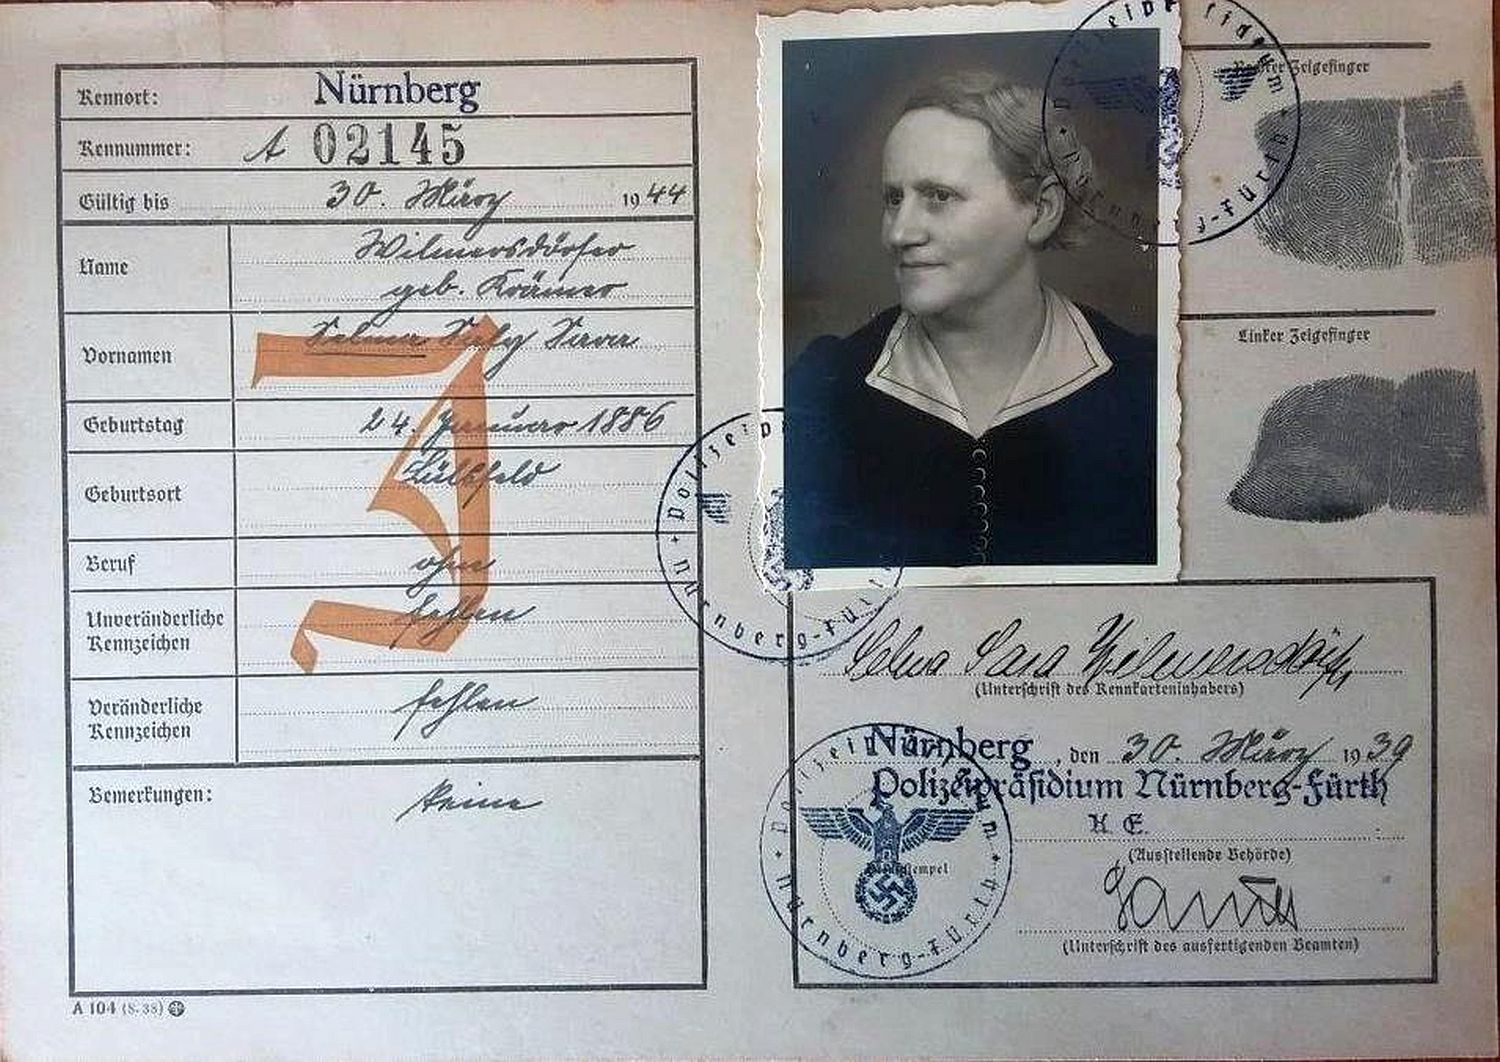 Kennort: Nürnberg
Kennummer: A 02145
Gültig bis 30. März 1944
Name Wilmersdörfer
geb. Krämer
Vornamen Selma Sara
Geburtstag 24. Januar 1886
Geburtsort Lülsfeld
Beruf ohne
Unveränderliche
Kennzeichen fehlen
Veränderliche
Kennzeichen fehlen
Bemerkungen: keine
J
A 104 (8.38)
Rechter Zeigefinger
Linker Zeigefinger
Polizeipräsidium
Nürnberg-Fürth
Polizeipräsidium
Nürnberg-Fürth
Selma Sara Wilmersdörfer
(Unterschrift des Kennkarteninhabers)
Nürnberg, den 30. März 1939
Polizeipräsidium Nürnberg-Fürth
K. E.
(Ausstellende Behörde)
(Unterschrift des ausfertigenden Beamten)
Polizeipräsidium
Nürnberg-Fürth